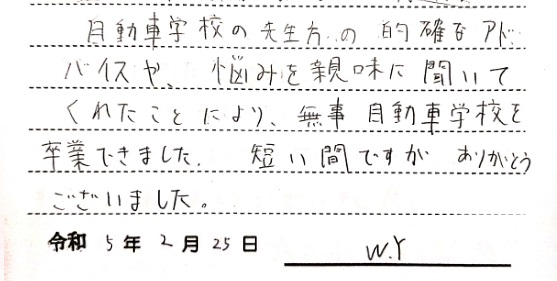 自動車学校の先生方の的確なアド
バイスや、悩みを親味に聞いて
くれたことにより、無事自動車学校を
卒業できました。短い間ですがありがとう
ございました。
令和 5年 2月 25日 W.Y